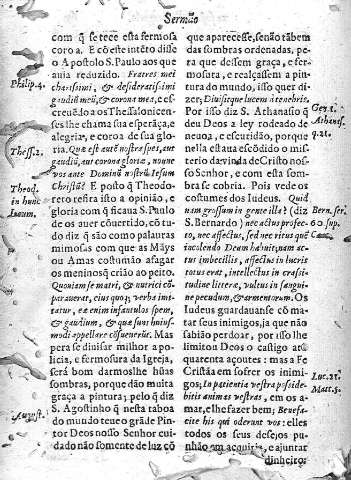 Sermão
com q̃ se tece esta fermosa
coroa. E cõ este intẽto disse
o Apostolo S. Paulo aos que
auia reduzido. Fratres mei
charissimi, & desideratissimi
gaudiũ meũ, & corona mea, e es-
creuẽdo aos Thessalonicen-
ses lhe chama sua esperãça, e
alegria, e coroa de sua glo-
ria. Quæ est autẽ nostra spes, aut
gaudiũ, aut corona gloriæ, nonne
vos ante Dominũ nostrũ Iesum
Christũ? E posto q̃ Theodo-
reto refira isto a opinião, e
gloria com q̃ ficaua S. Paulo
de os auer cõuertido, cõ tu-
do diz q̃ usa como palauras
mimosas com que as Mãys
ou Amas costumão afagar
os meninosq̃ crião ao peito.
Quoniam se matri, & nutrici cõ-
parauerat, eius quoq; verba imi-
tatur, eæ enim infantulos spem,
& gaudium, & quæ sunt huius-
modi appellare cõsueuerũt. Mas
por se disimar milhor a po-
licia, e fermosura da Igreja,
será bom darmoslhe hũas
sombras, porque dão muita
graça a pintura; pelo q̃ diz
S. Agostinho q̃ nesta taboa
do mundo teue o grãde Pin-
tor Deos nosso Senhor cui-
dado não somente de luz cõ
que aparecesse, senão tãbem
das sombras ordenadas, pe-
ra que dessem graça, e fer-
mosura, e realçassem a pin-
tura do mundo, isso quer di-
zer; Diuisitque lucem à tenebris.
Por isso diz S. Athanasio q̃
deu Deos a ley rodeado de
neuoa, e escuridão, porque
nella estaua escõdido o mis-
terio da vinda de Cristo nos-
so Senhor, e com esta som-
bra se cobria. Pois vede os
costumes dos Iudeus. Quid
nam grossum in gente illa? (diz
S. Bernardo) nec actus profec-
to, nec affectus, sed nec ritus quẽ
in colendo Deum habuit, nam ac-
tus imbecillis, affectus in lucris
totus erat, intellectus in crassi-
tudine litteræ, vultus in sangui-
ne pecudum, & armentorum. Os
Iudeus guardauanse cõ ma-
tar seus inimigos, ja que não
sabião perdoar, por isso lhe
limitou Deos o castigo aos
quarenta açoutes: mas a Fe
Cristãa em sofrer os inimi-
gos; In patientia vestra posside-
bitis animas vestras, em os a-
mar, e lhe fazer bem; Benefa-
cite his qui oderunt vos: elles
todos os seus desejos pu-
nhão em acquirir, e ajuntar
dinheiro:
Philip. 4.
Thess. 2.
Theod.
in hunc
locum.
August.
Gen. 1.
Athanas.
q. 21.
Bern. ser.
60. sup.
Cant.
Luc. 21.
Matt. 5.